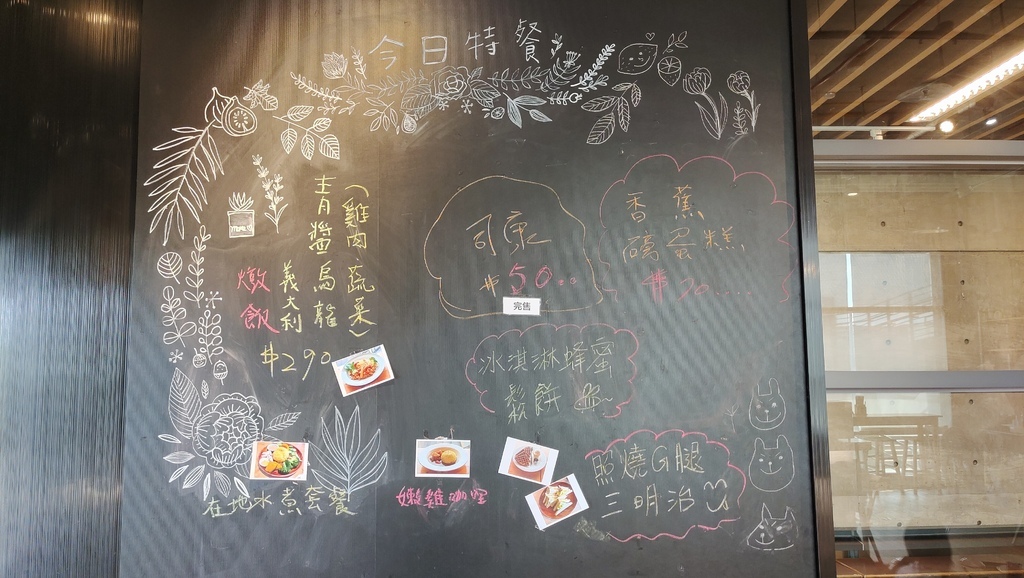 今日特餐
(雞肉、蔬菜)
青醬烏龍
義大利
燉飯
$290
司康
$50..
完售
香蕉
磅蛋糕
$90.....
冰淇淋蜂蜜
鬆餅
照燒G腿
三明治
在地水煮套餐
嫩雞咖哩